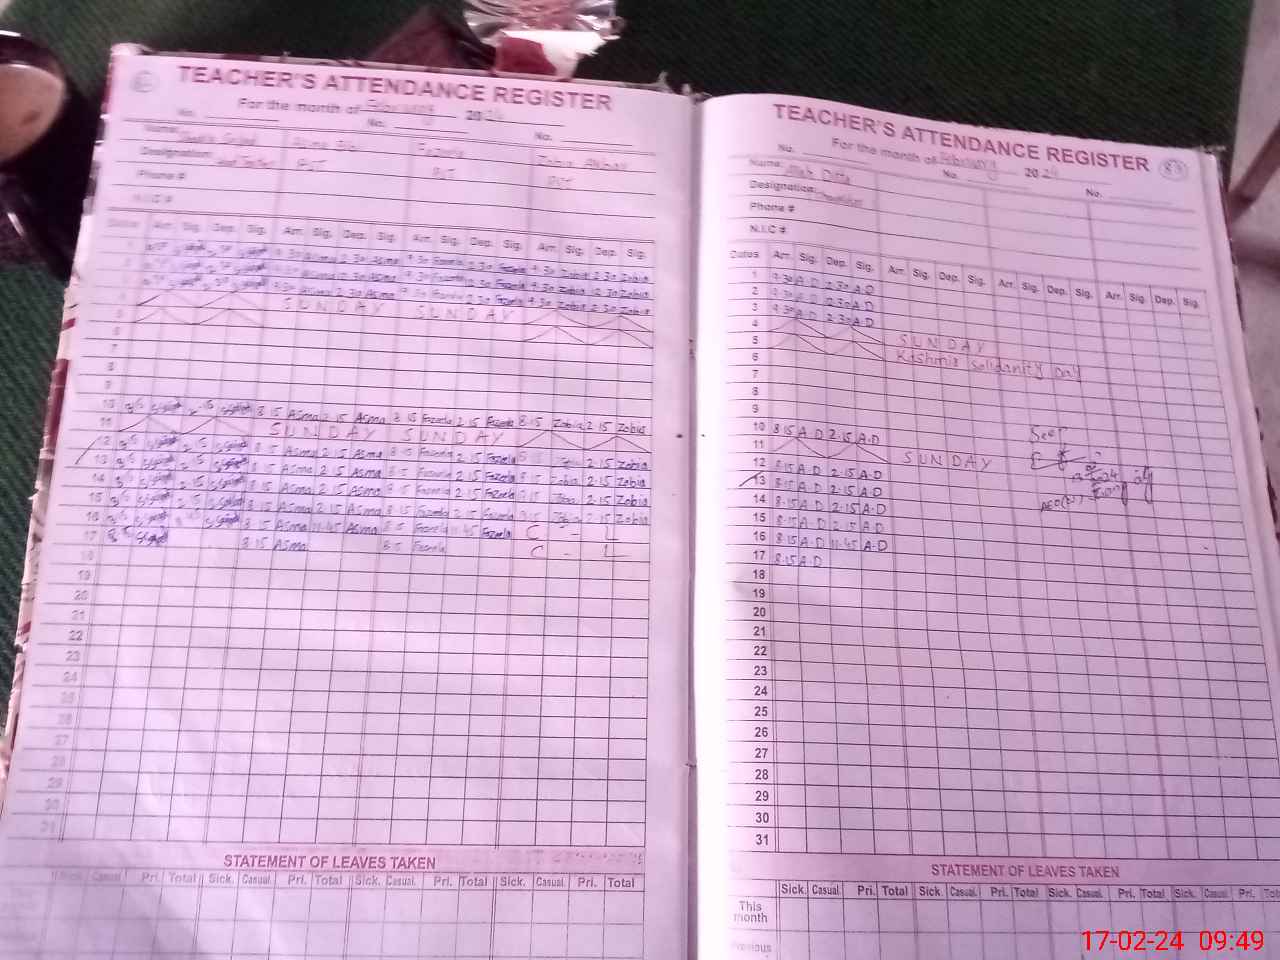 TEACHER'S ATTENDANCE REGISTER
For the month of February 2024
No. No. No.
Name: Asma Bibi Fozeela Zobia Akbar
Designation: PST PST PST
Phone #
N.I.C #
Dates Arr. Sig. Dep. Sig. Arr. Sig. Dep. Sig. Arr. Sig. Dep. Sig. Arr. Sig. Dep. Sig.
1 9.30 Asma 2.30 Asma 9.30 Fozeela 2.30 Fozeela 9.30 Zobia 2.30 Zobia
2 9.30 Asma 2.30 Asma 9.30 Fozeela 2.30 Fozeela 9.30 Zobia 2.30 Zobia
3 9.30 Asma 2.30 Asma 9.30 Fozeela 2.30 Fozeela 9.30 Zobia 2.30 Zobia
4 SUNDAY SUNDAY
5
6
7
8
9
10 8.15 Asma 2.15 Asma 8.15 Fozeela 2.15 Fozeela 8.15 Zobia 2.15 Zobia
11 SUNDAY SUNDAY
12 8.15 Asma 2.15 Asma 8.15 Fozeela 2.15 Fozeela 8.15 Zobia 2.15 Zobia
13 8.15 Asma 2.15 Asma 8.15 Fozeela 2.15 Fozeela 8.15 Zobia 2.15 Zobia
14 8.15 Asma 2.15 Asma 8.15 Fozeela 2.15 Fozeela 8.15 Zobia 2.15 Zobia
15 8.15 Asma 2.15 Asma 8.15 Fozeela 2.15 Fozeela 8.15 Zobia 2.15 Zobia
16 8.15 Asma 11.45 Asma 8.15 Fozeela 11.45 Fozeela C - L
17 8.15 Asma 8.15 Fozeela C - L
18
19
20
21
22
23
24
25
26
27
28
29
30
31
STATEMENT OF LEAVES TAKEN
Sick. Casual. Pri. Total Sick. Casual. Pri. Total Sick. Casual. Pri. Total Sick. Casual. Pri. Total
TEACHER'S ATTENDANCE REGISTER
83
For the month of February 2024
No. No. No.
Name: Allah Ditta
Designation: Chowkidar
Phone #
N.I.C #
Dates Arr. Sig. Dep. Sig. Arr. Sig. Dep. Sig. Arr. Sig. Dep. Sig. Arr. Sig. Dep. Sig.
1 9.30 A.D 2.30 A.D
2 9.30 A.D 2.30 A.D
3 9.30 A.D 2.30 A.D
4 SUNDAY
5 Kashmir Solidarity Day
6
7
8
9
10 8.15 A.D 2.15 A.D
11 SUNDAY
12 8.15 A.D 2.15 A.D
13 8.15 A.D 2.15 A.D
14 8.15 A.D 2.15 A.D
15 8.15 A.D 2.15 A.D
16 8.15 A.D 11.45 A.D
17 8.15 A.D
18
19
20
21
22
23
24
25
26
27
28
29
30
31
STATEMENT OF LEAVES TAKEN
Sick. Casual. Pri. Total Sick. Casual. Pri. Total Sick. Casual. Pri. Total Sick. Casual. Pri.
This month
Previous
17-02-24 09:49